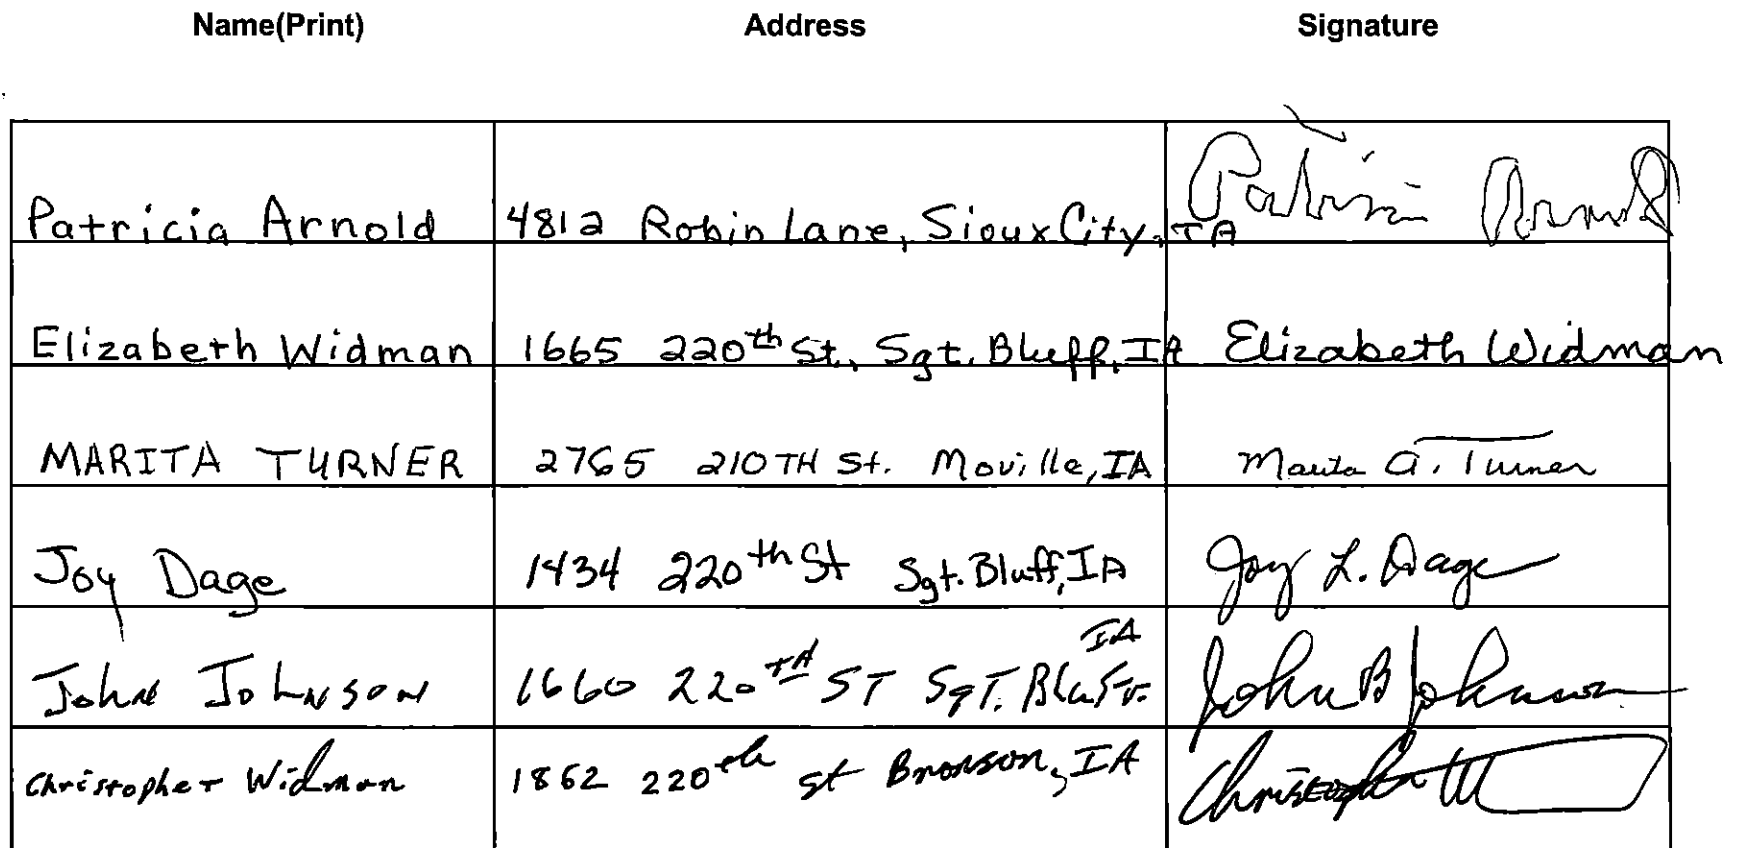 Name(Print) Address Signature
Patricia Arnold 4812 Robin Lane, Sioux City, IA Patricia Arnold
Elizabeth Widman 1665 220th St., Sgt. Bluff, IA Elizabeth Widman
MARITA TURNER 2765 210TH St. Moville, IA Marita A. Turner
Joy Dage 1434 220th St Sgt. Bluff, IA Joy L. Dage
John Johnson 1660 220TH ST SgT. Bluff. IA John B Johnson
Christopher Widman 1862 220th st Bronson, IA Christopher